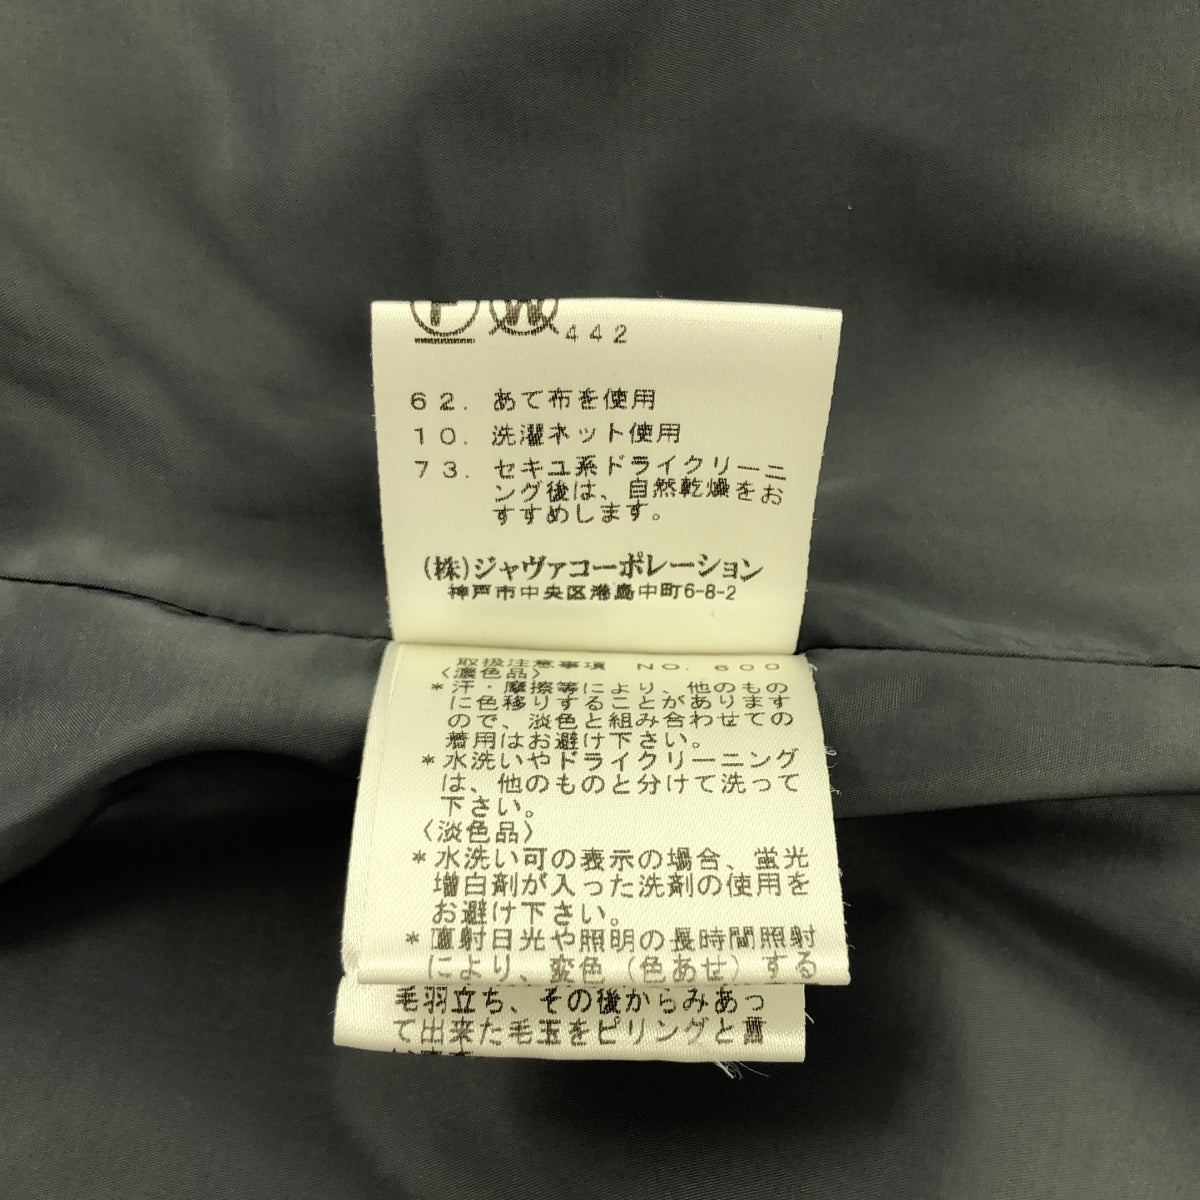 F W 442
62. あて布を使用
10. 洗濯ネット使用
73. セキユ系ドライクリーニ
ング後は、自然乾燥をお
すすめします。
(株)ジャヴァコーポレーション
神戸市中央区港島中町6-8-2
取扱注意事項 NO. 600
〈濃色品〉
*汗・摩擦等により、他のもの
に色移りすることがあります
ので、淡色と組み合わせての
着用はお避け下さい。
*水洗いやドライクリーニング
は、他のものと分けて洗って
下さい。
〈淡色品〉
*水洗い可の表示の場合、蛍光
増白剤が入った洗剤の使用を
お避け下さい。
*直射日光や照明の長時間照射
により、変色(色あせ)する
毛羽立ち、その後からみあっ
て出来た毛玉をピリングと言